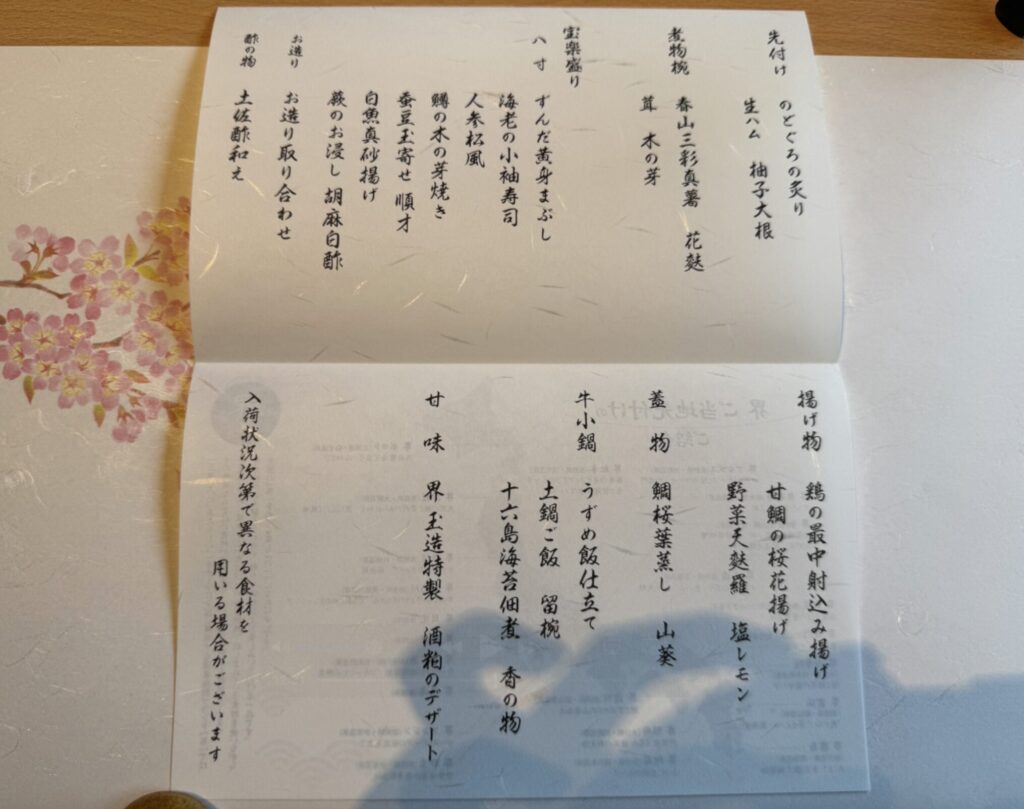 先付け
のどぐろの炙り
生ハム　柚子大根
煮物椀
春山三彩真薯　花麩
茸　木の芽
宝楽盛り
八寸
ずんだ黄身まぶし
海老の小袖寿司
人参松風
鱒の木の芽焼き
蚕豆玉寄せ　順才
白魚真砂揚げ
蕨のお浸し　胡麻白酢
お造り
お造り取り合わせ
酢の物
土佐酢和え
揚げ物
鶏の最中射込み揚げ
甘鯛の桜花揚げ
野菜天麩羅　塩レモン
蓋物
鯛桜葉蒸し　山葵
牛小鍋
うずめ飯仕立て
土鍋ご飯　留椀
十六島海苔佃煮　香の物
甘味
界玉造特製　酒粕のデザート
入荷状況次第で異なる食材を
用いる場合がございます